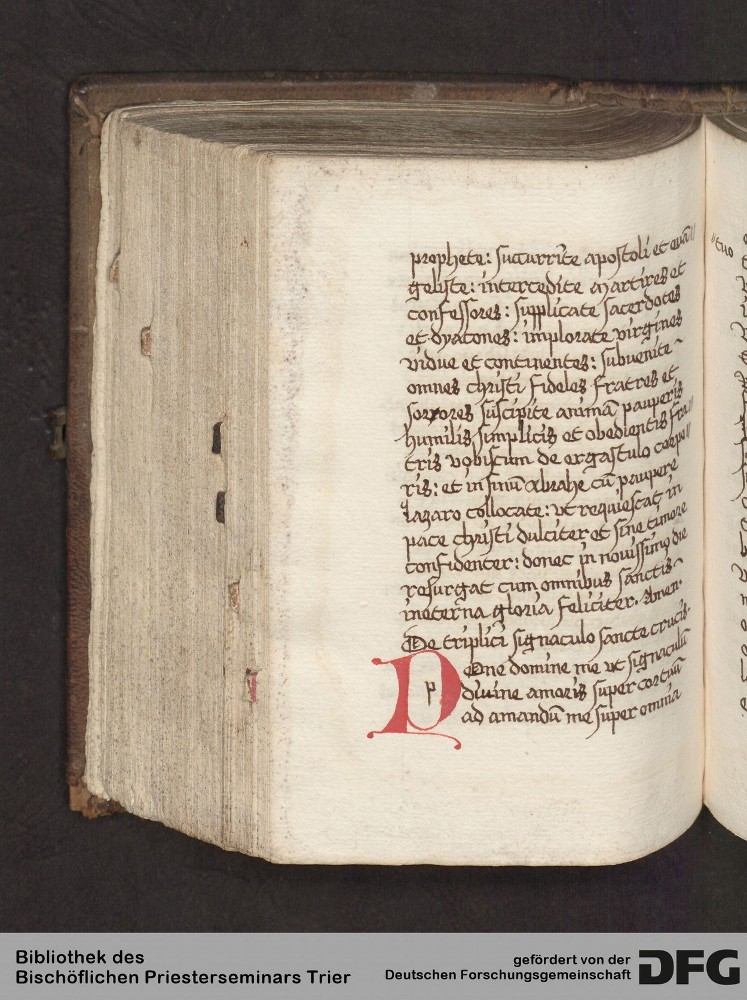 prophete: succurrite apostoli et euā
geliste: intercedite martires et
confessores: supplicate sacerdotes
et dyacones: implorate virgines
vidue et continentes: subuenite
omnes christi fideles fratres et
sorores suscipite animā pauperis
humilis simplicis et obedientis fra
tris vobiscum de ergastulo corpo
ris: et in sinū abrahe cū paupere
lazaro collocate: vt requiescat in
pace christi dulciter et sine timore
confidenter: donec in nouissimo die
resurgat cum omnibus sanctis
in eterna gloria feliciter. Amen.
De triplici signaculo sancte crucis.
Pone domine me vt signaculū
diuine amoris super cor tuū
ad amandū me super omnia
tuo
Bibliothek des
Bischöflichen Priesterseminars Trier
gefördert von der
Deutschen Forschungsgemeinschaft
DFG